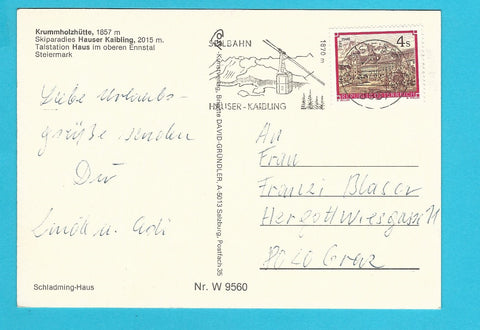 Krummholzhütte, 1857 m
Skiparadies Hauser Kaibling, 2015 m.
Talstation Haus im oberen Ennstal
Steiermark
Liebe Urlaubs-
grüße senden
Dir
Linda u. Adi
Schladming-Haus
DAVID-GRÜNDLER, A-5013 Salzburg, Postfach 35
Nr. W 9560
SEILBAHN
1870 m
HAUSER-KAIBLING
4s
REPUBLIK ÖSTERREICH
An
Frau
Franzi Blaser
Hergottwiesgasse 11
8020 Graz